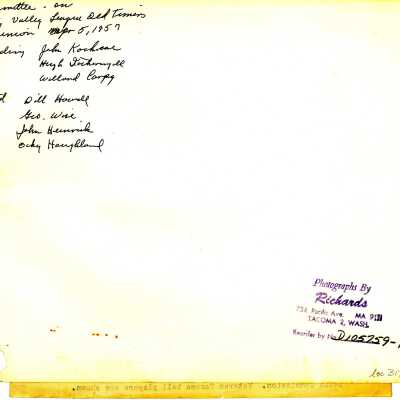 mittee - on
Valley League Old Timers
eunion Apr 5, 1957
ding John Kochsar
Hugh
Willard Carpy
Dill Howell
Geo. Wise
John Heinrick
Ocky Haughland
Photographs By
Richards
736 Pacific Ave. MA 9111
TACOMA 2, WASH.
Reorder by No. D105259-
loc 31